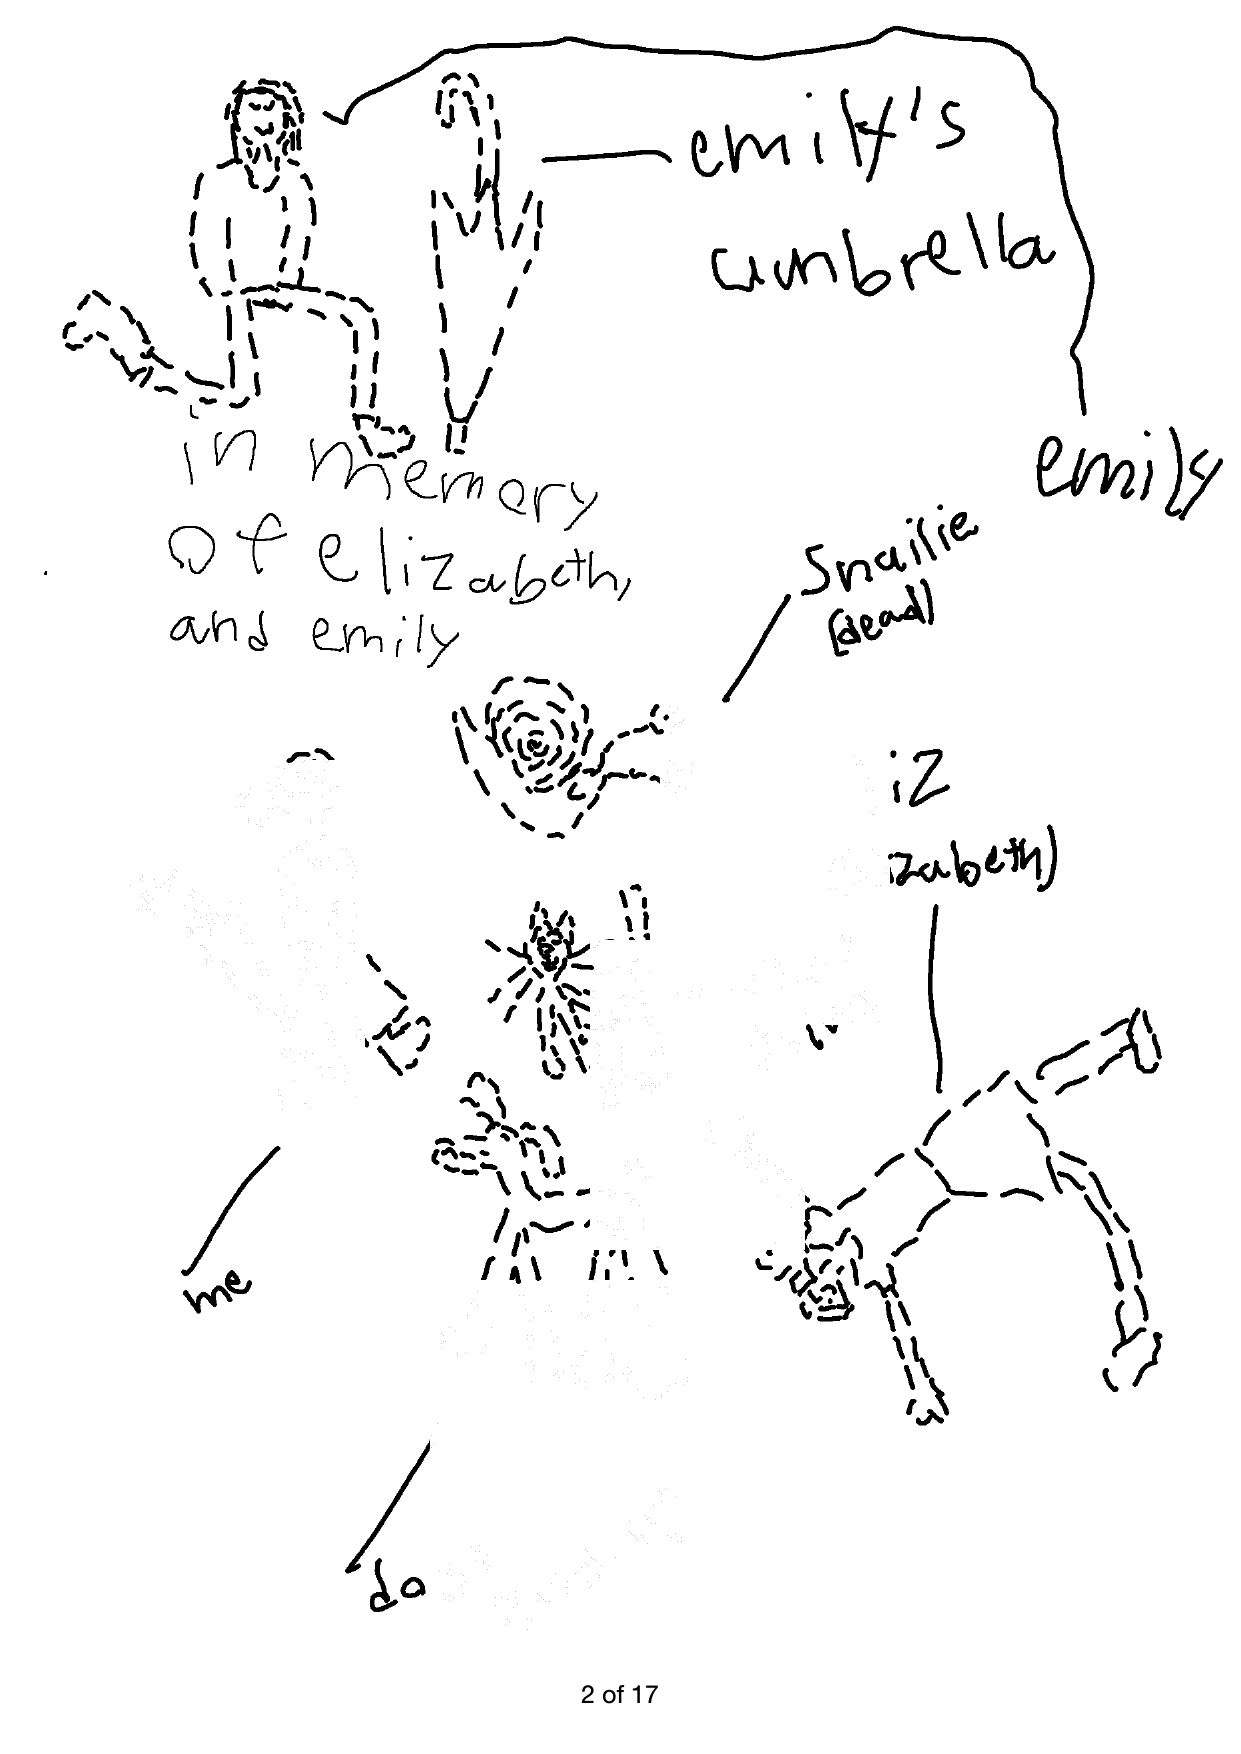 emily's
umbrella
emily
in memory
of elizabeth,
and emily
Snailie
(dead)
iz
izabeth)
me
do
2 of 17